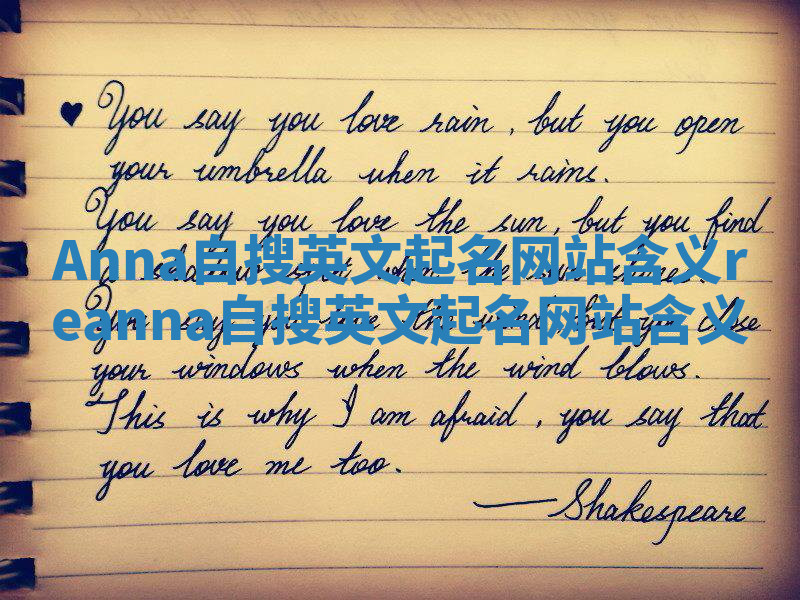 ♥ You say you love rain, but you open
your umbrella when it rains.
You say you love the sun, but you find
a shadow spot when the sun shines.
Anna自搜英文起名网站含义r
You say you love the wind, but you close
eanna自搜英文起名网站含义
your windows when the wind blows.
This is why I am afraid, you say that
you love me too.
—Shakespeare